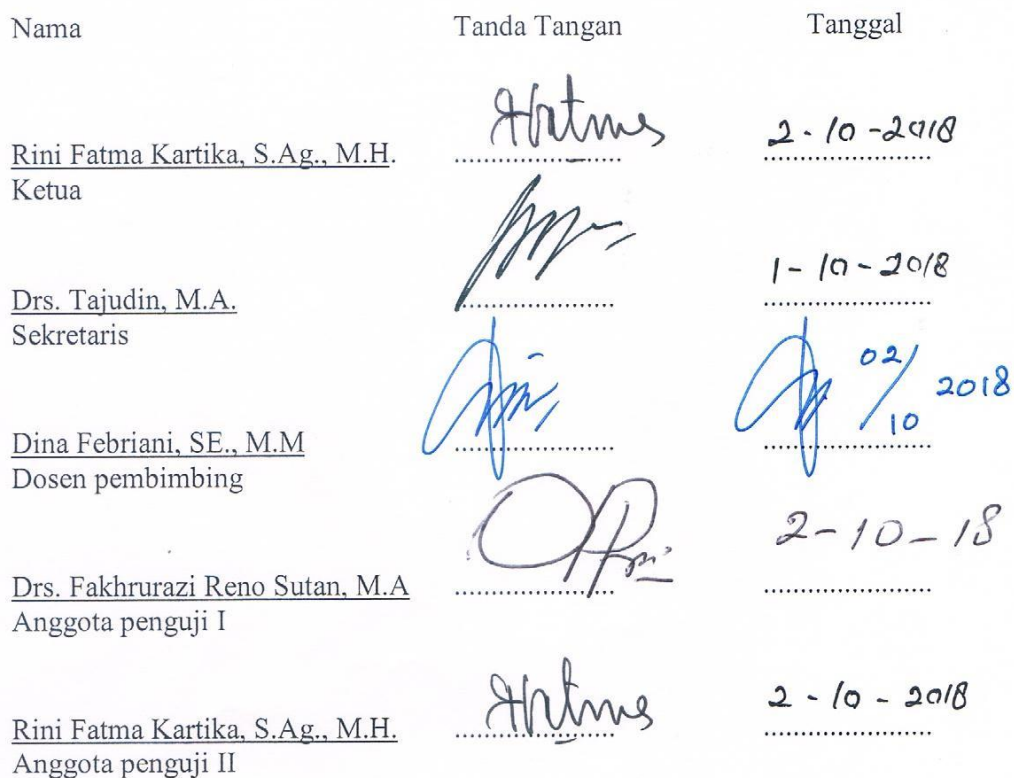 Nama Tanda Tangan Tanggal
2-10-2018
Rini Fatma Kartika, S.Ag., M.H. .................... ....................
Ketua
1-10-2018
Drs. Tajudin, M.A. .................... ....................
Sekretaris
02/10 2018
Dina Febriani, SE., M.M .................... ....................
Dosen pembimbing
2-10-18
Drs. Fakhrurazi Reno Sutan, M.A .................... ....................
Anggota penguji I
2-10-2018
Rini Fatma Kartika, S.Ag., M.H. .................... ....................
Anggota penguji II